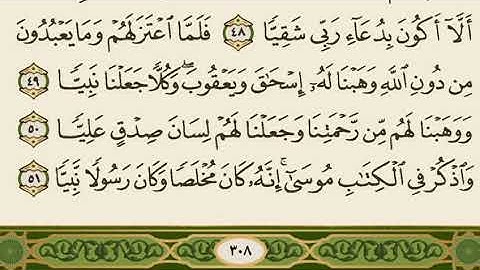 أَلَّآ أَكُونَ بِدُعَآءِ رَبِّى شَقِيًّا ٤٨ فَلَمَّا ٱعْتَزَلَهُمْ وَمَا يَعْبُدُونَ
مِن دُونِ ٱللَّهِ وَهَبْنَا لَهُۥٓ إِسْحَٰقَ وَيَعْقُوبَۖ وَكُلًّا جَعَلْنَا نَبِيًّا ٤٩
وَوَهَبْنَا لَهُم مِّن رَّحْمَتِنَا وَجَعَلْنَا لَهُمْ لِسَانَ صِدْقٍ عَلِيًّا ٥٠
وَٱذْكُرْ فِى ٱلْكِتَٰبِ مُوسَىٰٓۚ إِنَّهُۥ كَانَ مُخْلَصًا وَكَانَ رَسُولًا نَّبِيًّا ٥١
٣٠٨